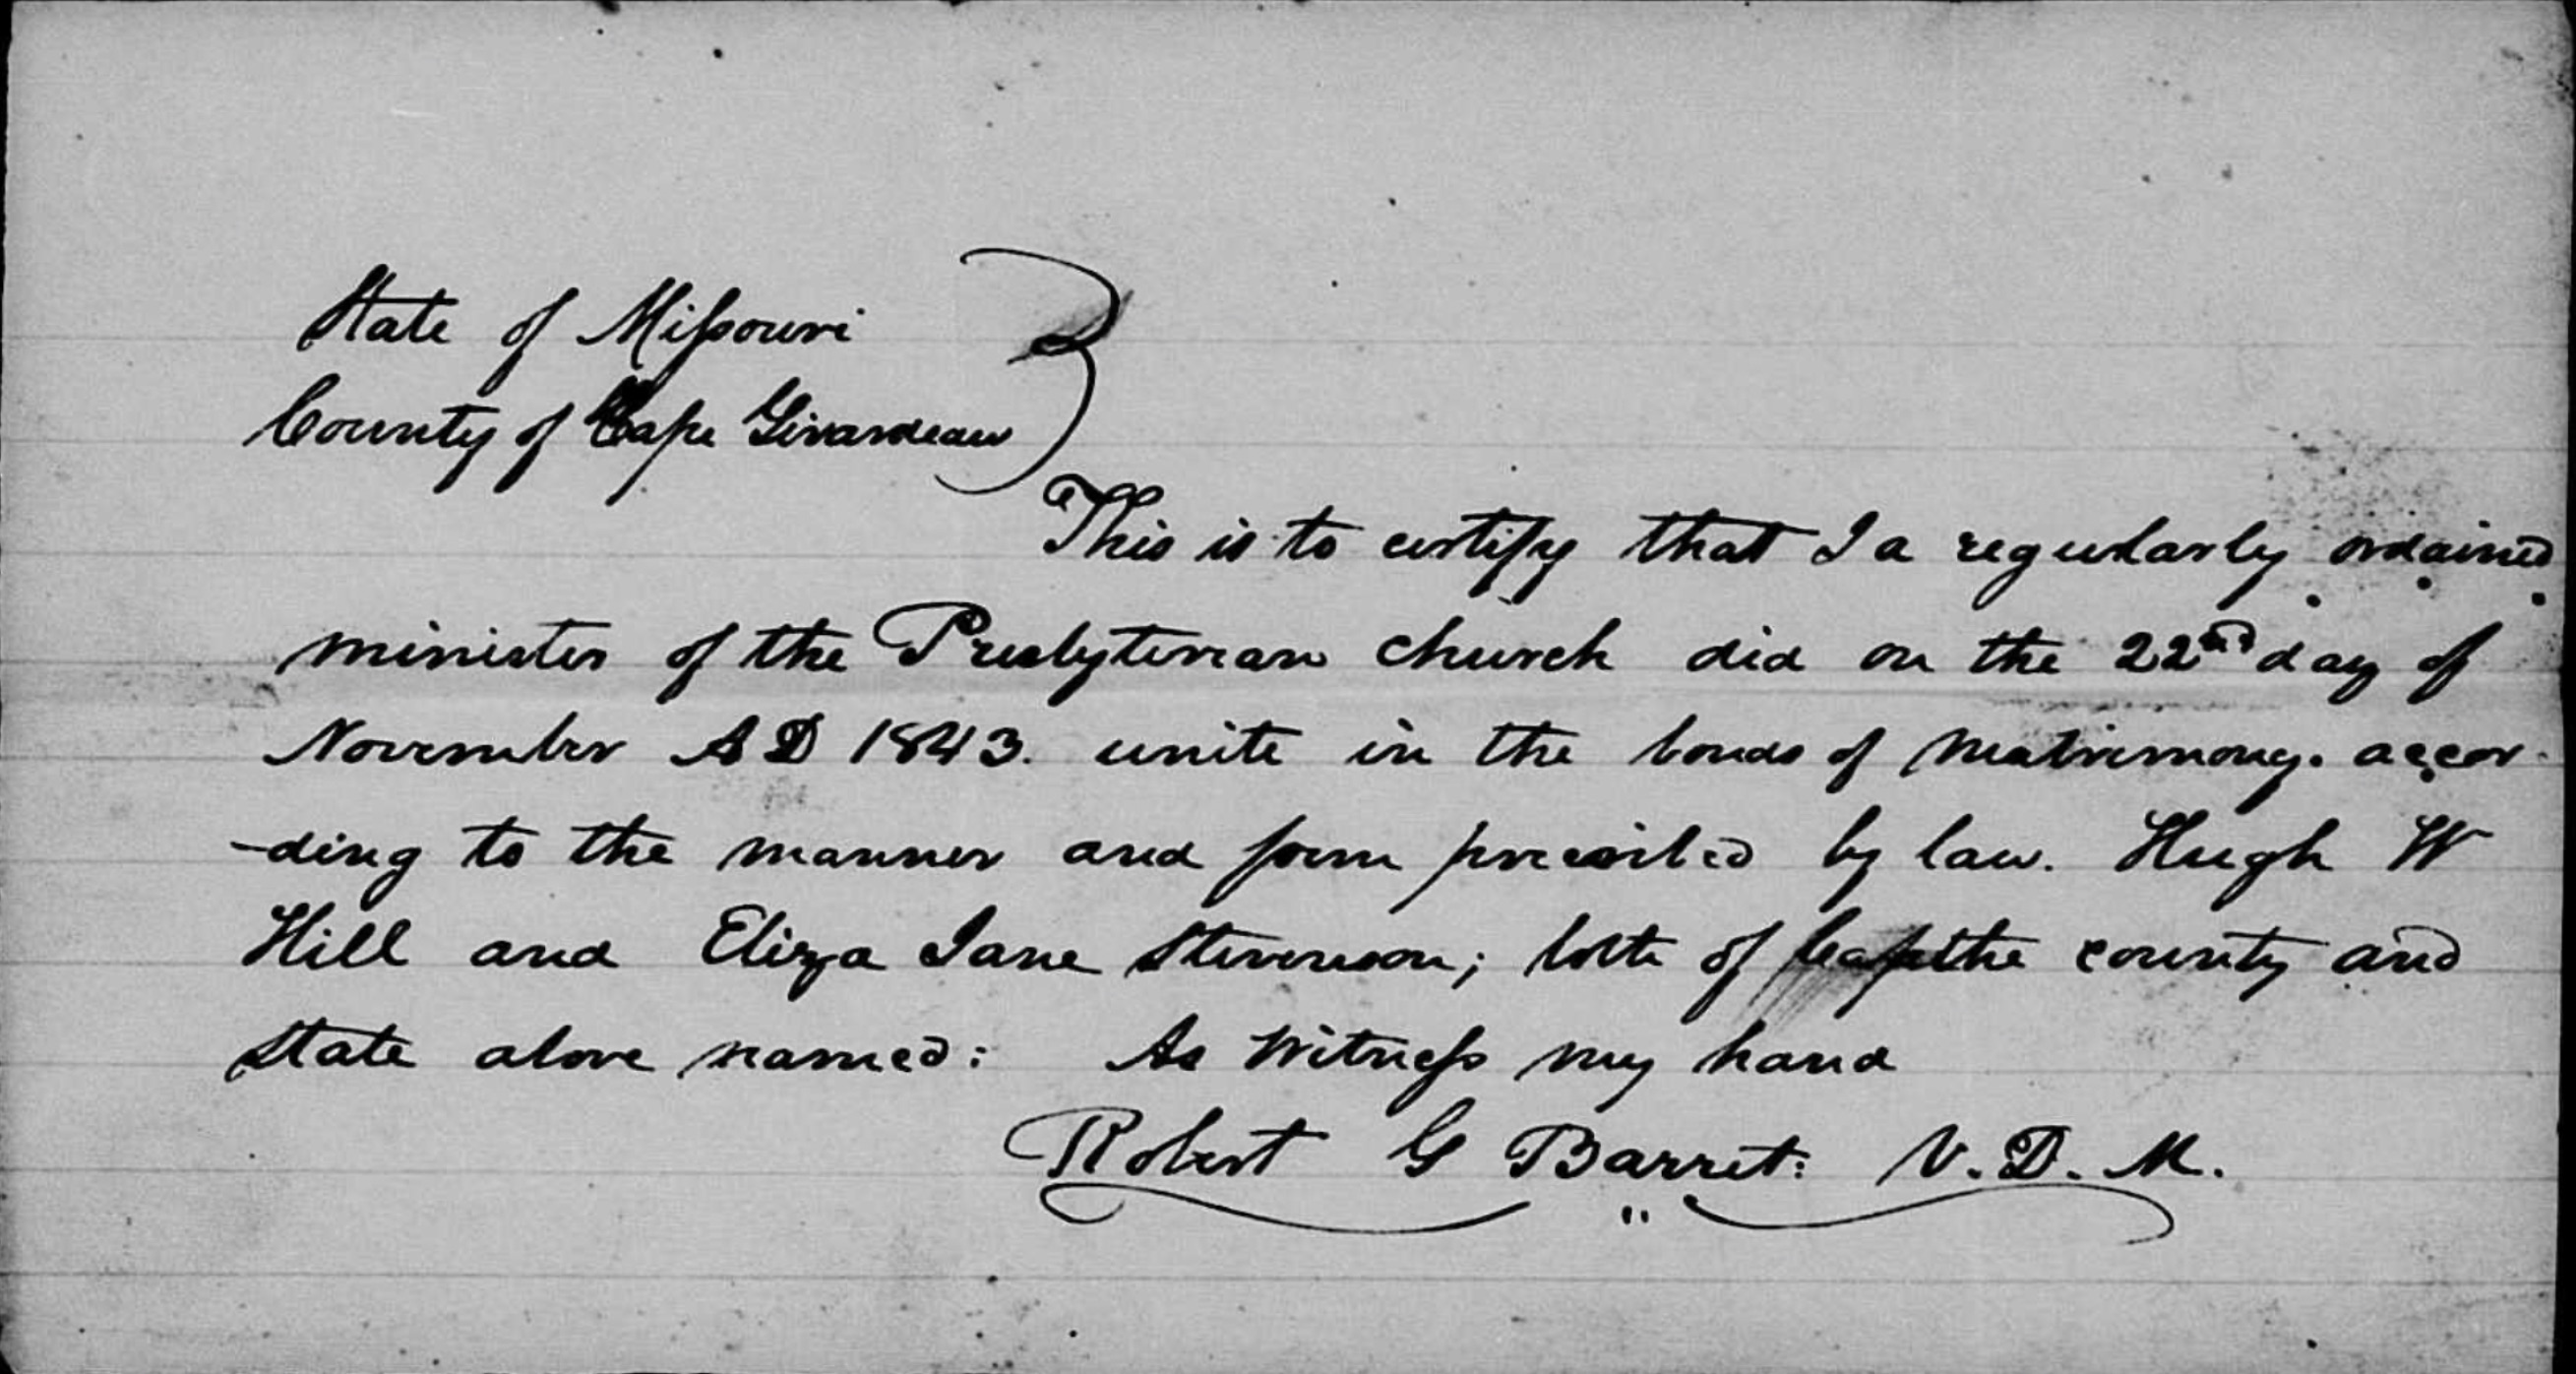 State of Missouri
County of Cape Girardeau
This is to certify that I a regularly ordained
minister of the Presbyterian church did on the 22nd day of
November A D 1843. unite in the bonds of matrimony. accor-
-ding to the manner and form prescribed by law. Hugh W
Hill and Eliza Jane Stevenson; both of the county and
State above named: As Witness my hand
Robert G Barret: V. D. M.